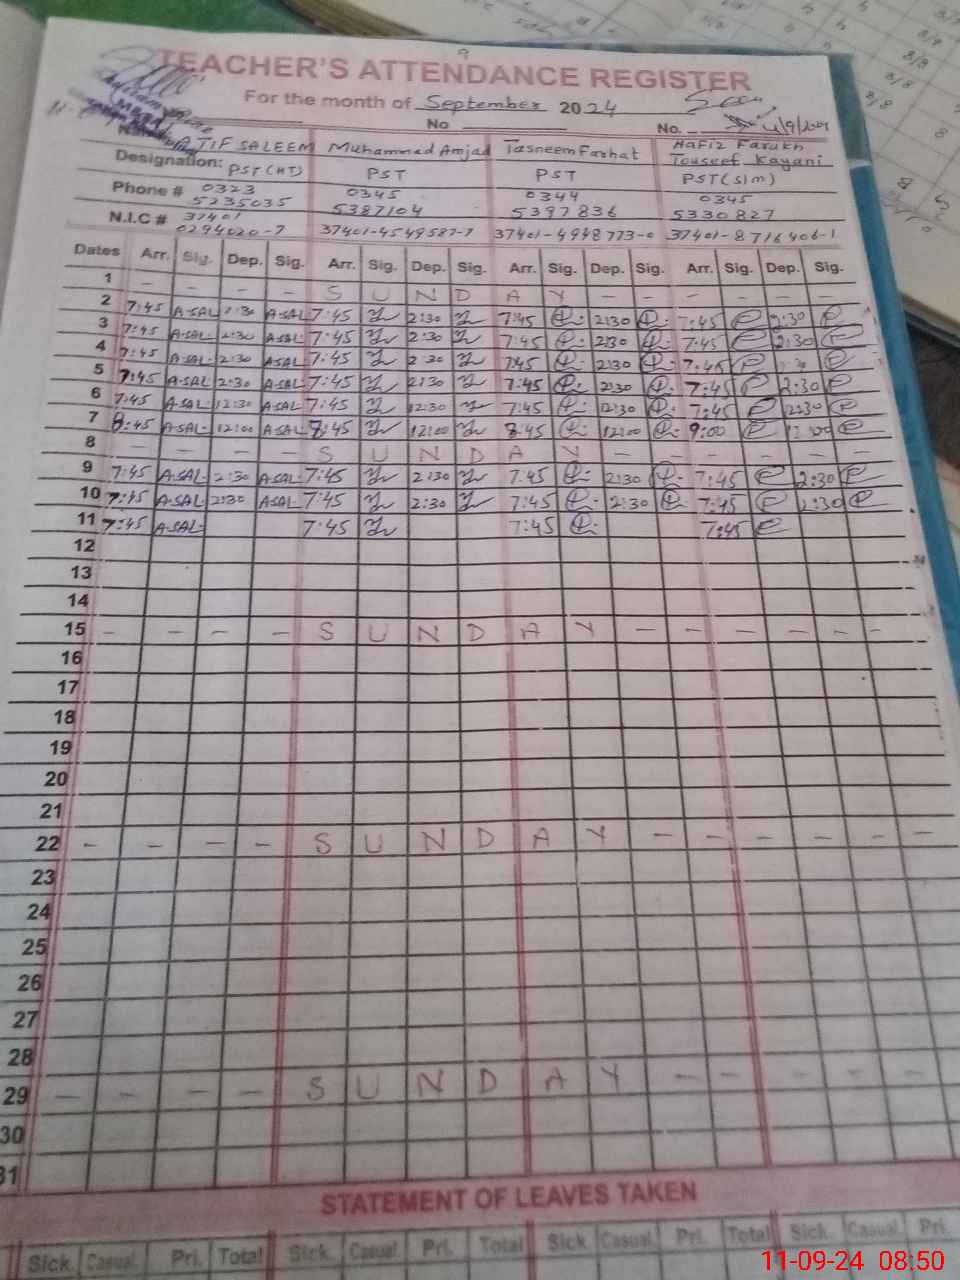 9
TEACHER'S ATTENDANCE REGISTER
For the month of September 2024
No. No. 4/9/2024
ATIF SALEEM Muhammad Amjad Tasneem Farhat Hafiz Farukh Touseef Kayani
Designation: PST (HT) PST PST PST (S/M)
Phone # 0323 5235035 0345 5387104 0344 5397836 0345 5330827
N.I.C # 37401 0294020-7 37401-4549587-7 37401-4948773-0 37401-8716406-1
Dates Arr. Sig. Dep. Sig. Arr. Sig. Dep. Sig. Arr. Sig. Dep. Sig. Arr. Sig. Dep. Sig.
1 - - - - S U N D A Y - - - - - -
2 7:45 A.SAL 2:30 A.SAL 7:45 2:30 7:45 2:30 7:45 2:30
3 7:45 A.SAL 2:30 A.SAL 7:45 2:30 7:45 2:30 7:45 2:30
4 7:45 A.SAL 2:30 A.SAL 7:45 2:30 7:45 2:30 7:45
5 7:45 A.SAL 2:30 A.SAL 7:45 2:30 7:45 2:30 7:45 2:30
6 7:45 A.SAL 12:30 A.SAL 7:45 12:30 7:45 12:30 7:45
7 8:45 A.SAL 12:00 A.SAL 8:45 12:00 8:45 12:00 9:00
8 - - - - S U N D A Y - - - - - -
9 7:45 A.SAL 2:30 A.SAL 7:45 2:30 7:45 2:30 7:45 2:30
10 7:45 A.SAL 2:30 A.SAL 7:45 2:30 7:45 2:30 7:45 2:30
11 7:45 A.SAL 7:45 7:45 7:45
12
13
14
15 - - - - S U N D A Y - - - - - -
16
17
18
19
20
21
22 - - - - S U N D A Y - - - - - -
23
24
25
26
27
28
29 - - - - S U N D A Y - - - - - -
30
31
STATEMENT OF LEAVES TAKEN
Sick Casual Pri. Total Sick Casual Pri. Total Sick Casual Pri. Total Sick Casual Pri.
11-09-24 08:50